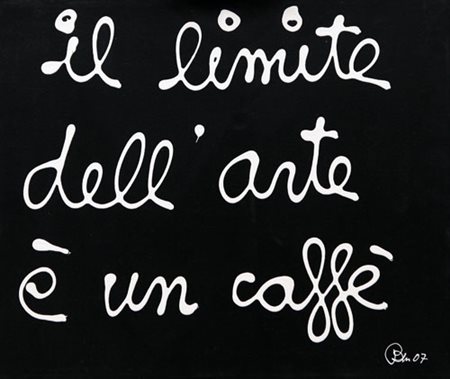 il limite
dell'arte
è un caffè
Ben 07